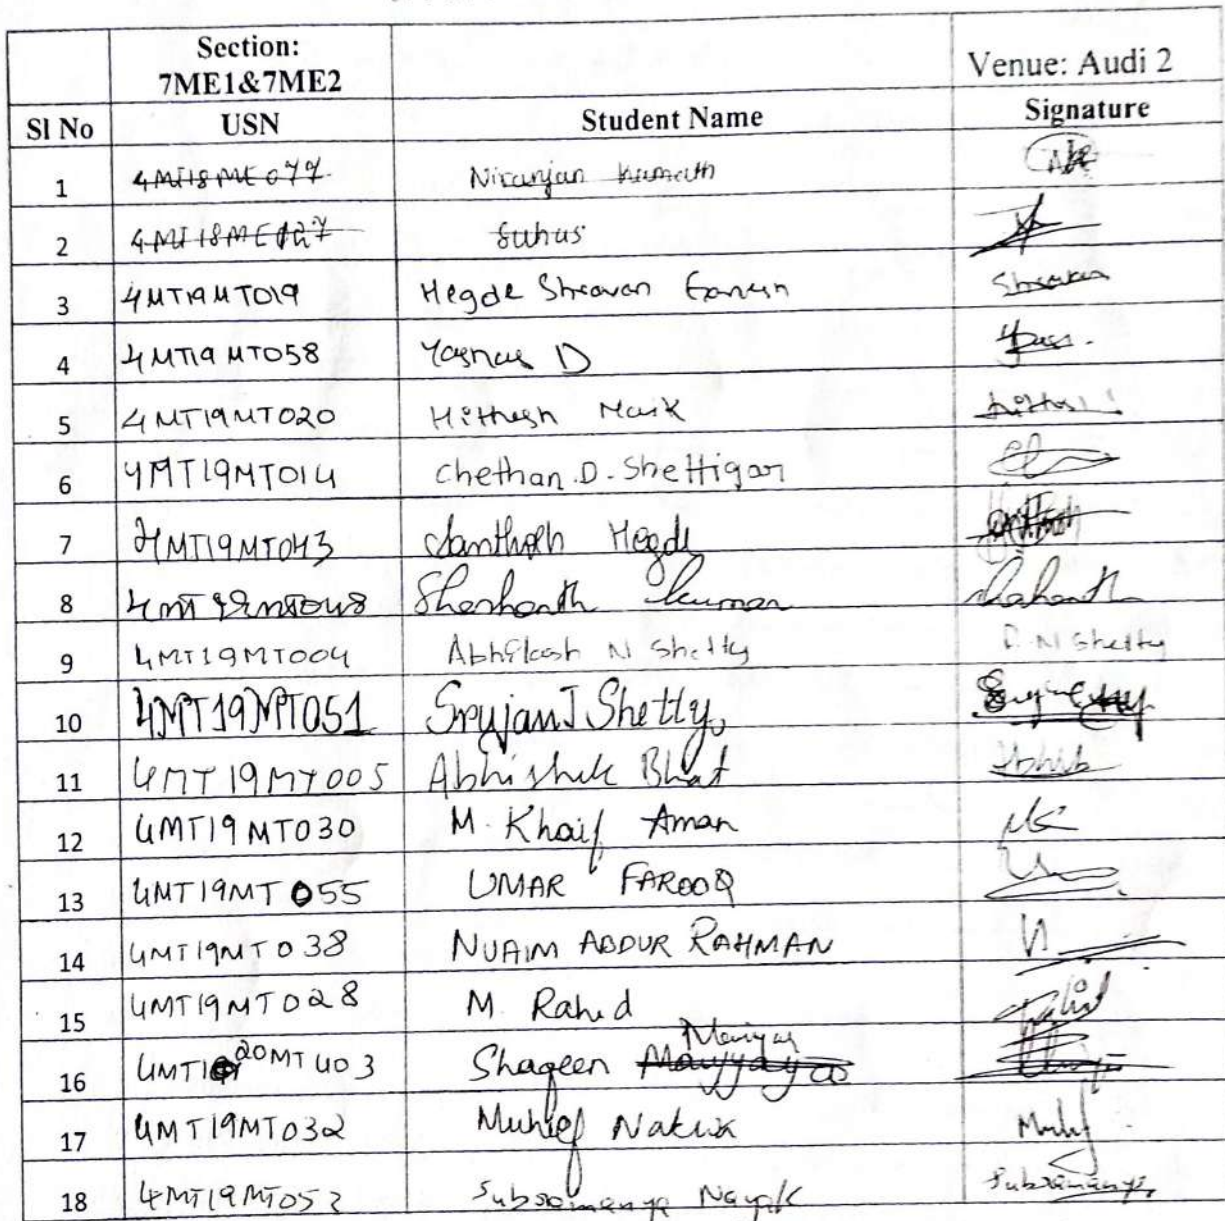 Section: 7ME1&7ME2 Venue: Audi 2
Sl No USN Student Name Signature
1 4MT18ME077 Niranjan Kamath
2 4MT18ME127 Suhas
3 4MT19MT019 Hegde Shravan Ganesh Shravan
4 4MT19MT058 Yashas D
5 4MT19MT020 Hithesh Naik
6 4MT19MT014 Chethan.D.Shettigar
7 4MT19MT043 Santhosh Hegde
8 Shashanth kumar
9 4MT19MT004 Abhilash N Shetty N Shetty
10 4MT19MT051 Srujan J Shetty
11 4MT19MT005 Abhishek Bhat
12 4MT19MT030 M. Khaif Aman
13 4MT19MT055 UMAR FAROOQ
14 4MT19MT038 NUAIM ABDUR RAHMAN
15 4MT19MT028 M. Rahid
16 20MT403 Shaqeen
17 4MT19MT032
18 4MT19MT052 Subramanya Nayak Subramanya